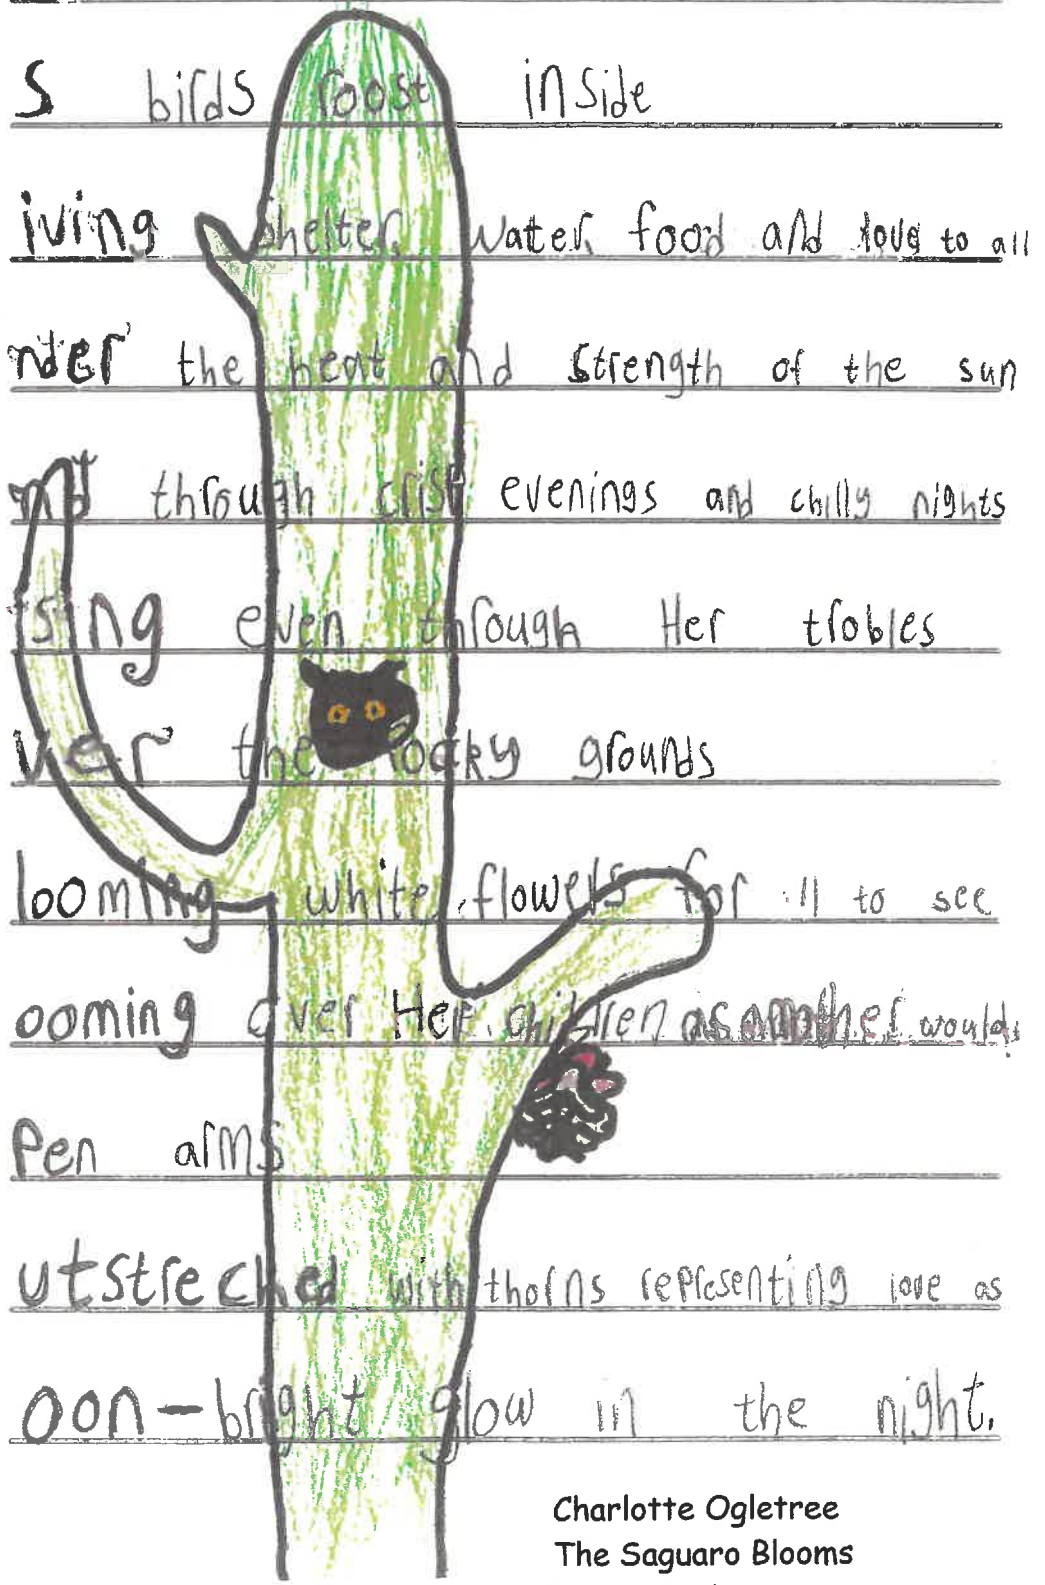 s birds roost inside
iving shelter, water, food and love to all
nder the heat and strength of the sun
nd through crisp evenings and chilly nights
sing even through Her trobles
ver the rocky grounds
looming white flowers for all to see
ooming over Her children as a mother would,
pen arms
utstreched with thorns representing love as
oon-bright glow in the night.
Charlotte Ogletree
The Saguaro Blooms